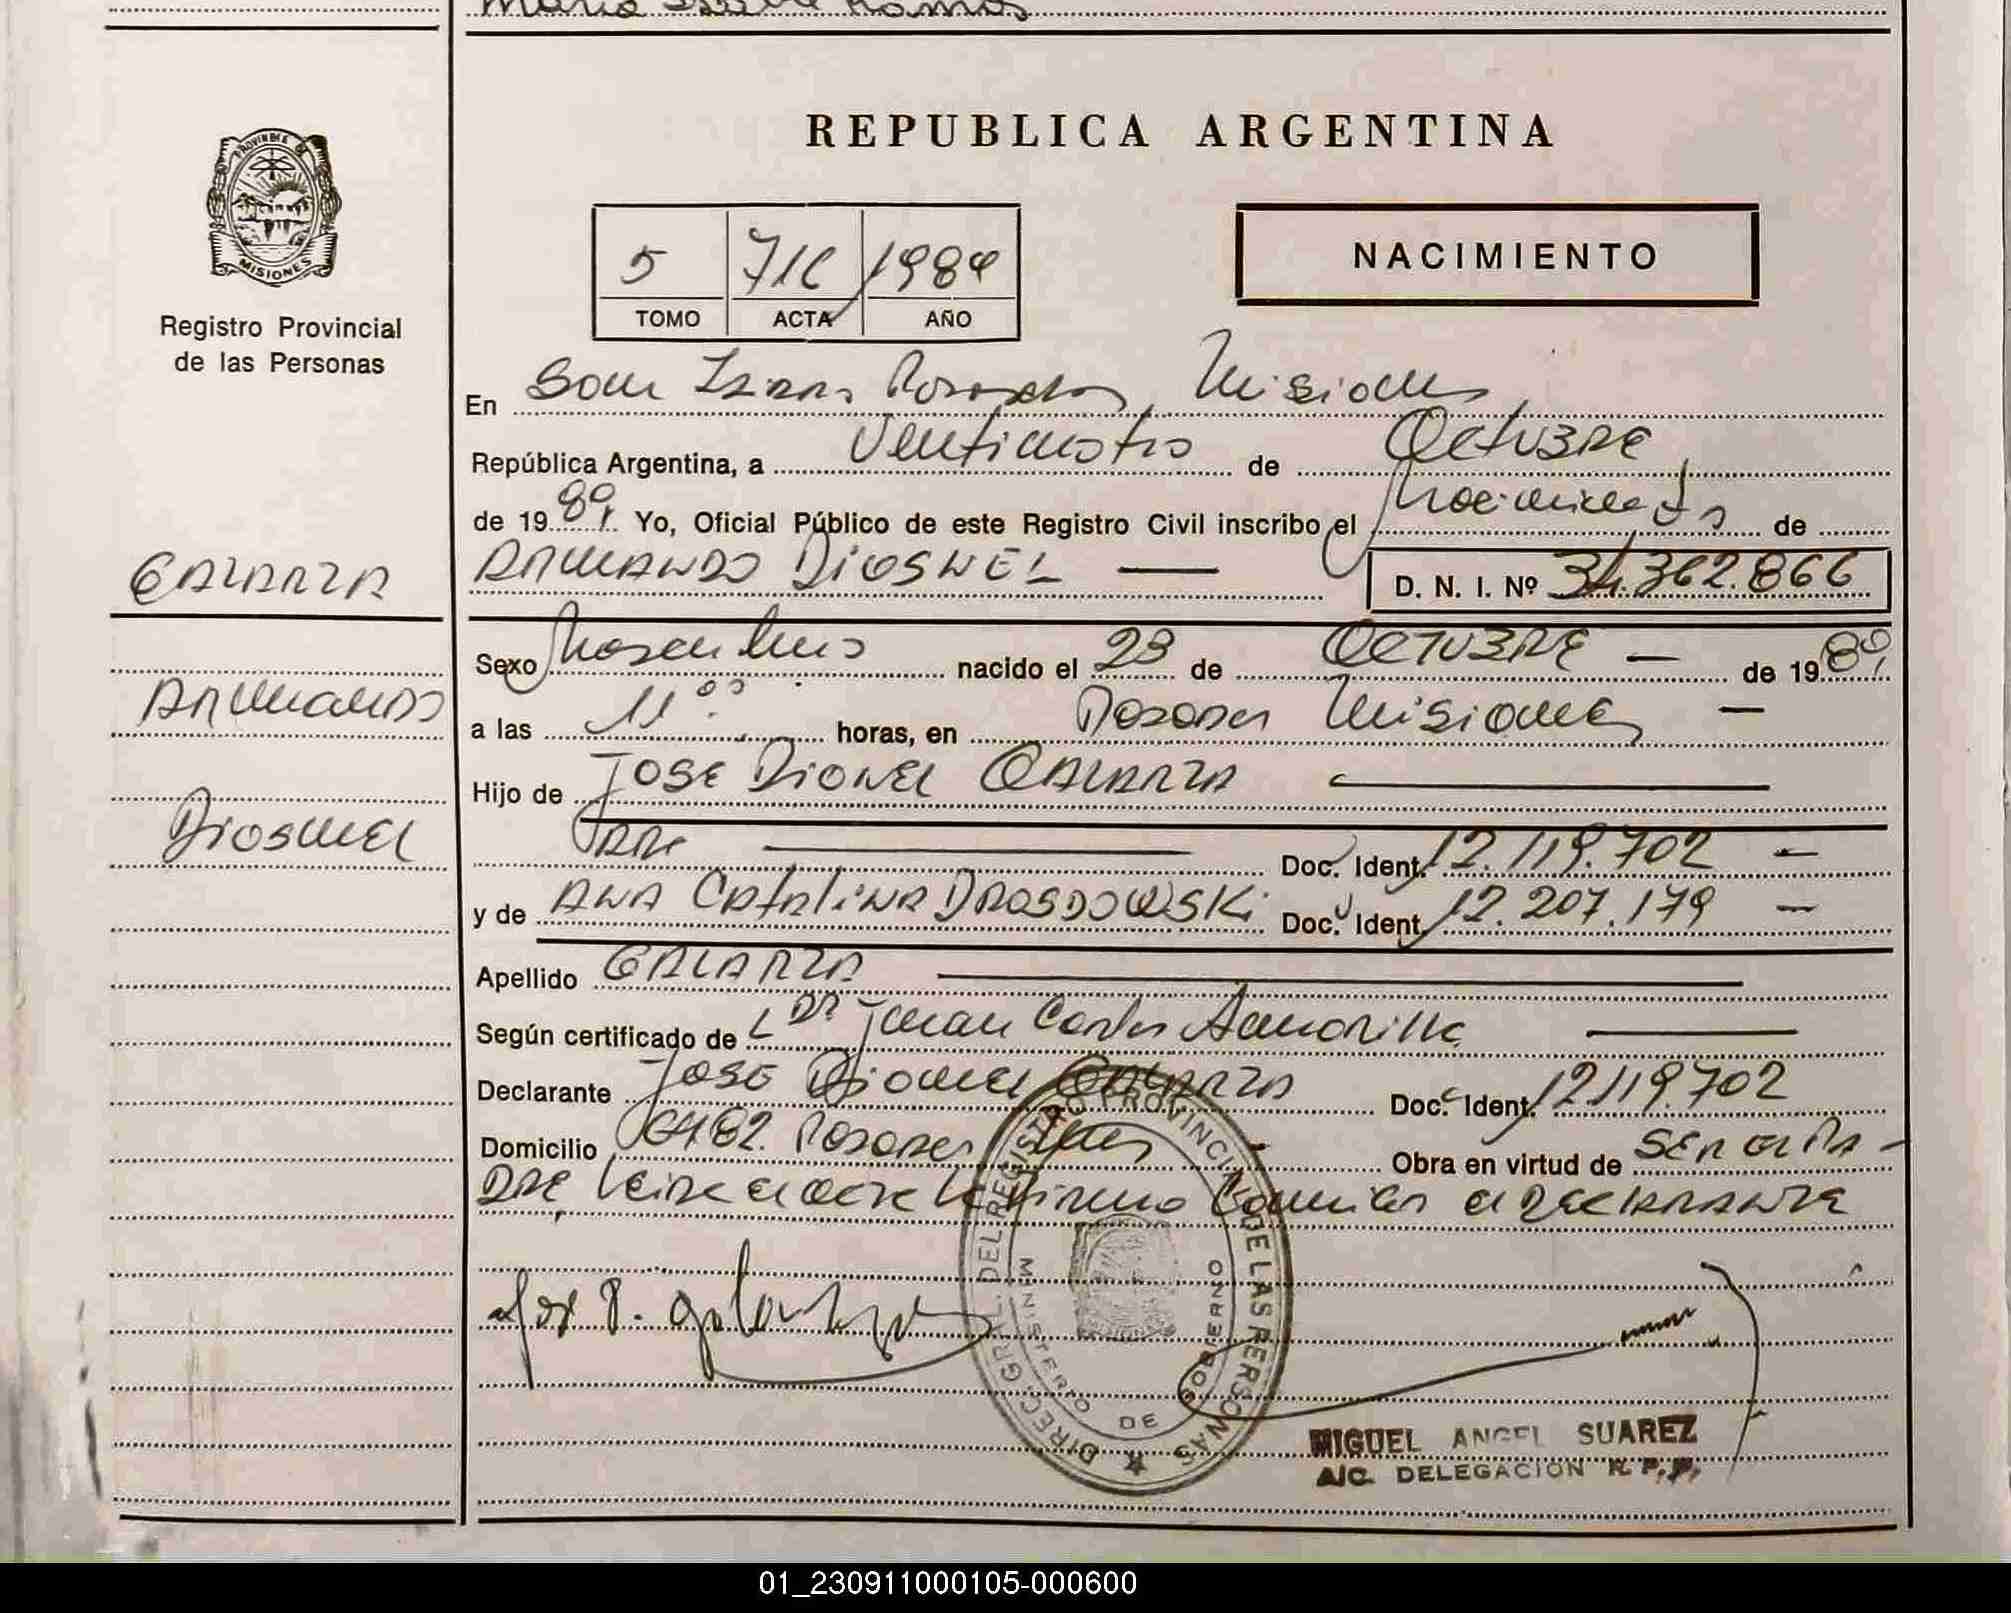 REPUBLICA ARGENTINA
PROVINCIA DE
MISIONES
Registro Provincial
de las Personas
5 716 1989
TOMO ACTA AÑO
NACIMIENTO
En Posadas, Misiones
República Argentina, a Venticuatro de Octubre
de 1989. Yo, Oficial Público de este Registro Civil inscribo el Nacimiento de
GALARZA
ARMANDO DIOSNEL — D. N. I. Nº 34.362.866
Sexo Masculino nacido el 23 de OCTUBRE — de 1989
ARMANDO
a las 11°° horas, en Posadas Misiones —
Hijo de JOSE DIONEL GALARZA
DIOSNEL
Doc. Ident. 12.119.702 —
y de ANA CATALINA DROSDOWSKI Doc. Ident. 12.207.179 —
Apellido GALARZA
Según certificado de Dr Juan Carlos
Declarante JOSE DIONEL GALARZA Doc. Ident. 12119.702
Domicilio Posadas Obra en virtud de SER EL PA-
DRE el DECLARANTE
DIREC. GRAL. DEL REGISTRO PROVINCIAL DE LAS PERSONAS
MINISTERIO DE GOBIERNO
MIGUEL ANGEL SUAREZ
A/C. DELEGACION R. P. P.
01_230911000105-000600